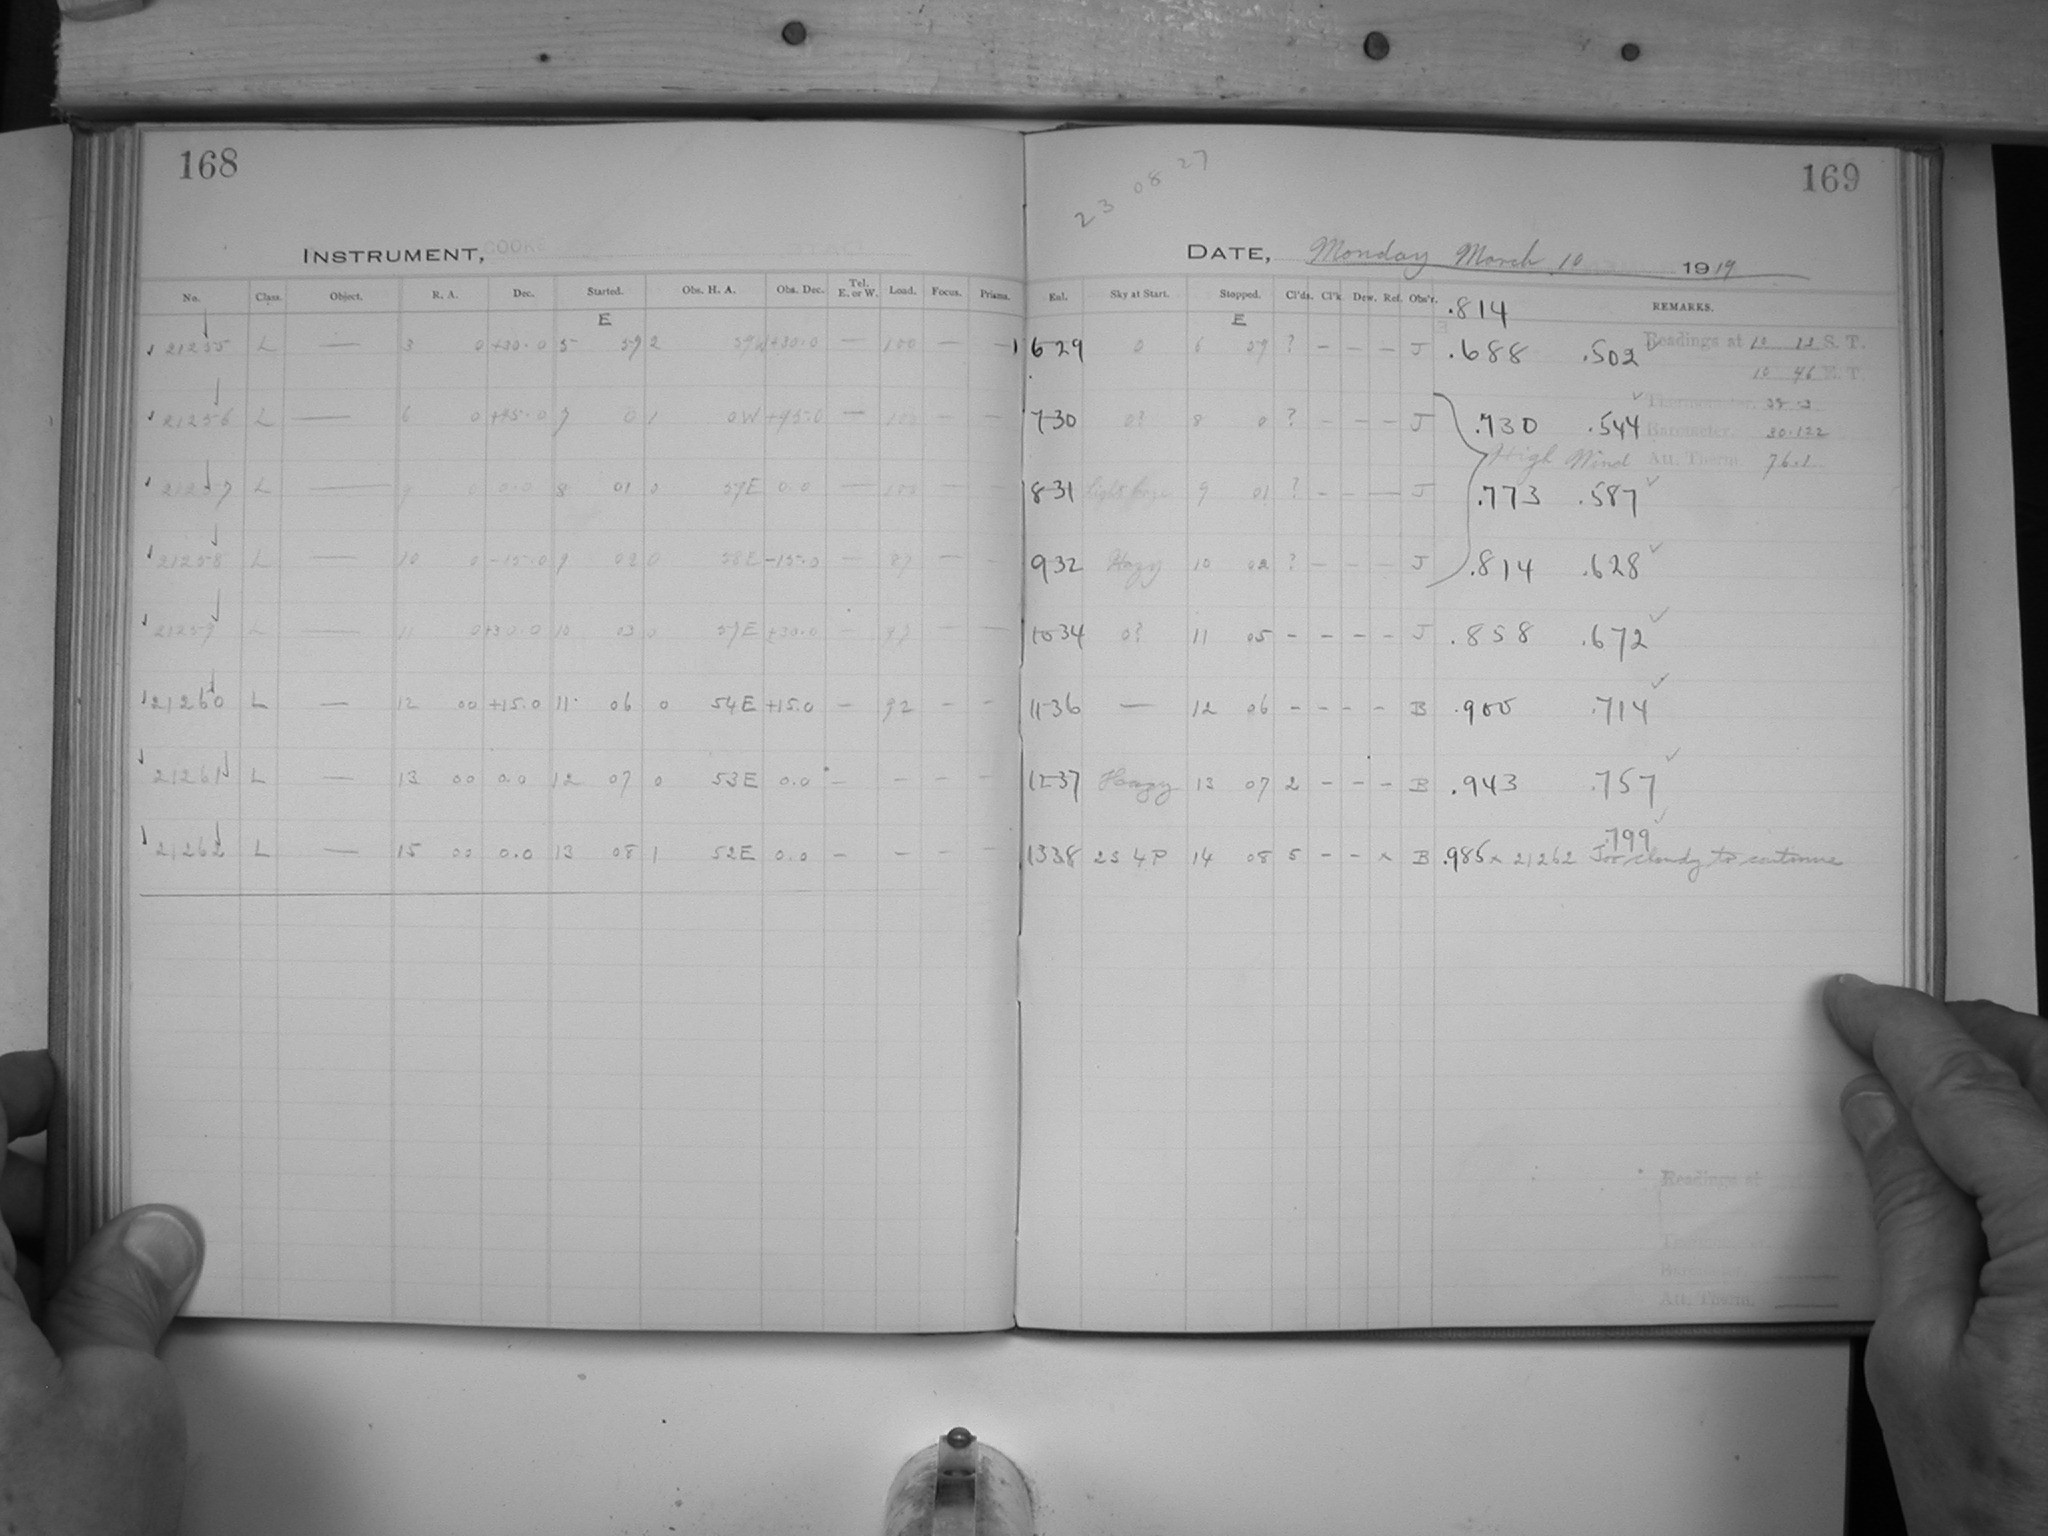 168
INSTRUMENT,
No. Class. Object. R. A. Dec. Started. Obs. H. A. Obs. Dec. Tel. E. or W. Load. Focus. Prisms.
E
21255 L — 3 0 +30.0 5 59 2 59W +30.0 — 100 — —
21256 L — 6 0 +45.0 7 0 1 0W +45.0 — 100 — —
21257 L — 9 0 0.0 8 01 0 59E 0.0 — 100 — —
21258 L — 10 0 -15.0 9 02 0 58E -15.0 — 87 — -
21259 L — 11 0 +30.0 10 03 0 57E +30.0 — 97 — —
21260 L — 12 00 +15.0 11 06 0 54E +15.0 — 92 - -
21261 L — 13 00 0.0 12 07 0 53E 0.0 - - - -
21262 L — 15 00 0.0 13 08 1 52E 0.0 - - - -
169
23 08 27
DATE, Monday March 10 1919
Exl. Sky at Start. Stopped. Cl'ds. Cl'k. Dew. Ref. Obs'r. .814 REMARKS.
E
629 0 6 59 ? - - - J .688 .502 Readings at 10 13 S. T.
10 46 E. T.
Thermometer,
730 0? 8 0 ? - - - J .730 .544 Barometer, 30.122
High Wind Att. Therm. 76.1
831 Light haze 9 01 ? - - — J .773 .587
932 Hazy 10 02 ? - - - J .814 .628
1034 0? 11 05 - - - - J .858 .672
1136 — 12 06 - - - - B .900 .714
1237 Hazy 13 07 2 - - - B .943 .757
.799
1338 2S 4P 14 08 5 - - x B .985 x 21262 Too cloudy to continue
Readings at
Thermometer
Barometer
Att. Therm.